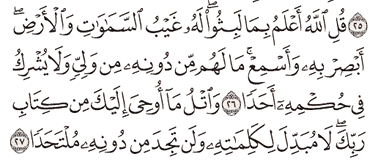 ٢٥ قُلِ ٱللَّهُ أَعۡلَمُ بِمَا لَبِثُواْۖ لَهُۥ غَيۡبُ ٱلسَّمَٰوَٰتِ وَٱلۡأَرۡضِۖ
أَبۡصِرۡ بِهِۦ وَأَسۡمِعۡۚ مَا لَهُم مِّن دُونِهِۦ مِن وَلِيّٖ وَلَا يُشۡرِكُ
فِي حُكۡمِهِۦٓ أَحَدٗا ٢٦ وَٱتۡلُ مَآ أُوحِيَ إِلَيۡكَ مِن كِتَابِ
رَبِّكَۖ لَا مُبَدِّلَ لِكَلِمَٰتِهِۦ وَلَن تَجِدَ مِن دُونِهِۦ مُلۡتَحَدٗا ٢٧